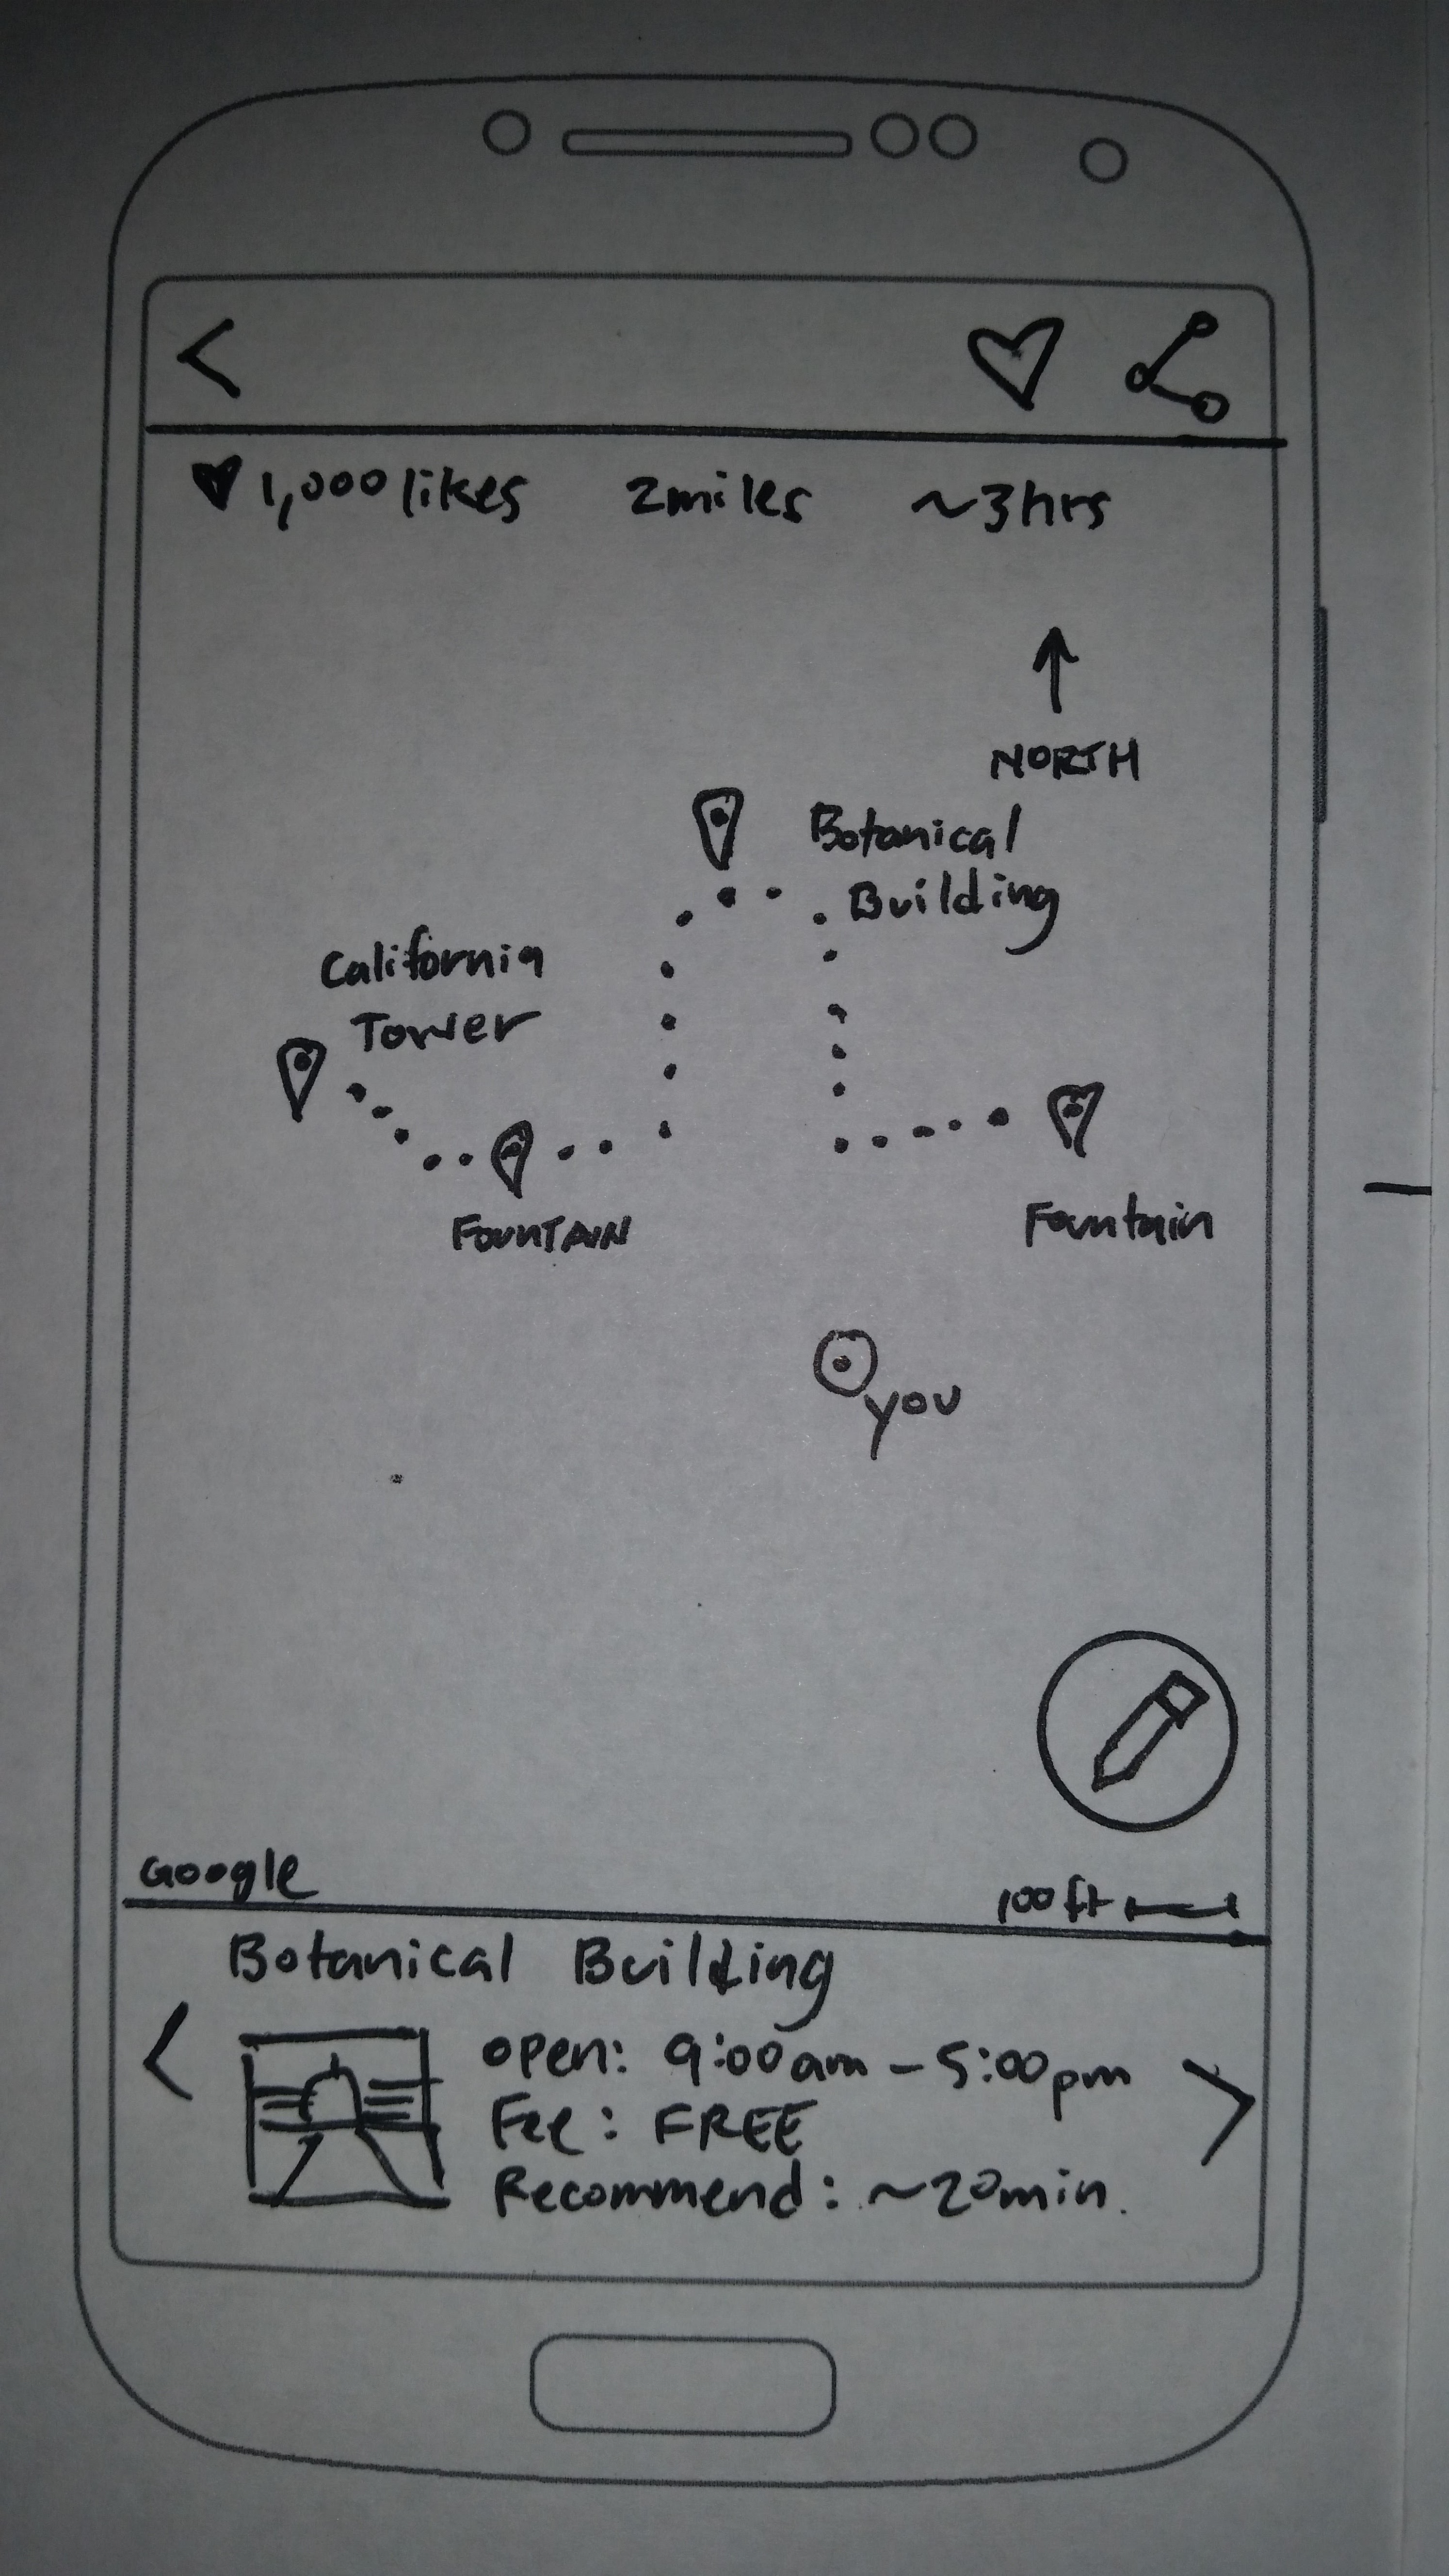 ♥ 1,000 likes 2 miles ~3hrs
NORTH
Botanical
Building
California
Tower
FOUNTAIN
Fountain
you
Google
100 ft
Botanical Building
open: 9:00am - 5:00pm
Fee: FREE
Recommend: ~20min.